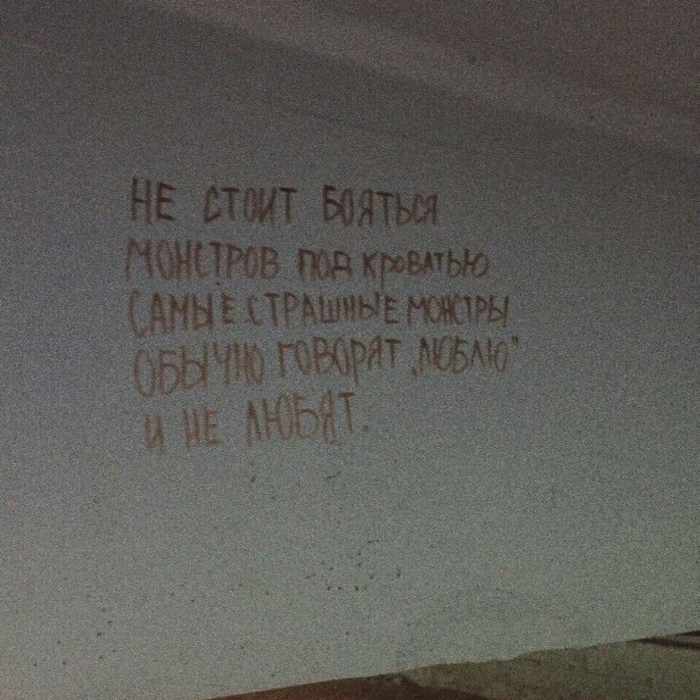 НЕ СТОИТ БОЯТЬСЯ
МОНСТРОВ ПОД КРОВАТЬЮ
САМЫЕ СТРАШНЫЕ МОНСТРЫ
ОБЫЧНО ГОВОРЯТ „ЛЮБЛЮ"
И НЕ ЛЮБЯТ.